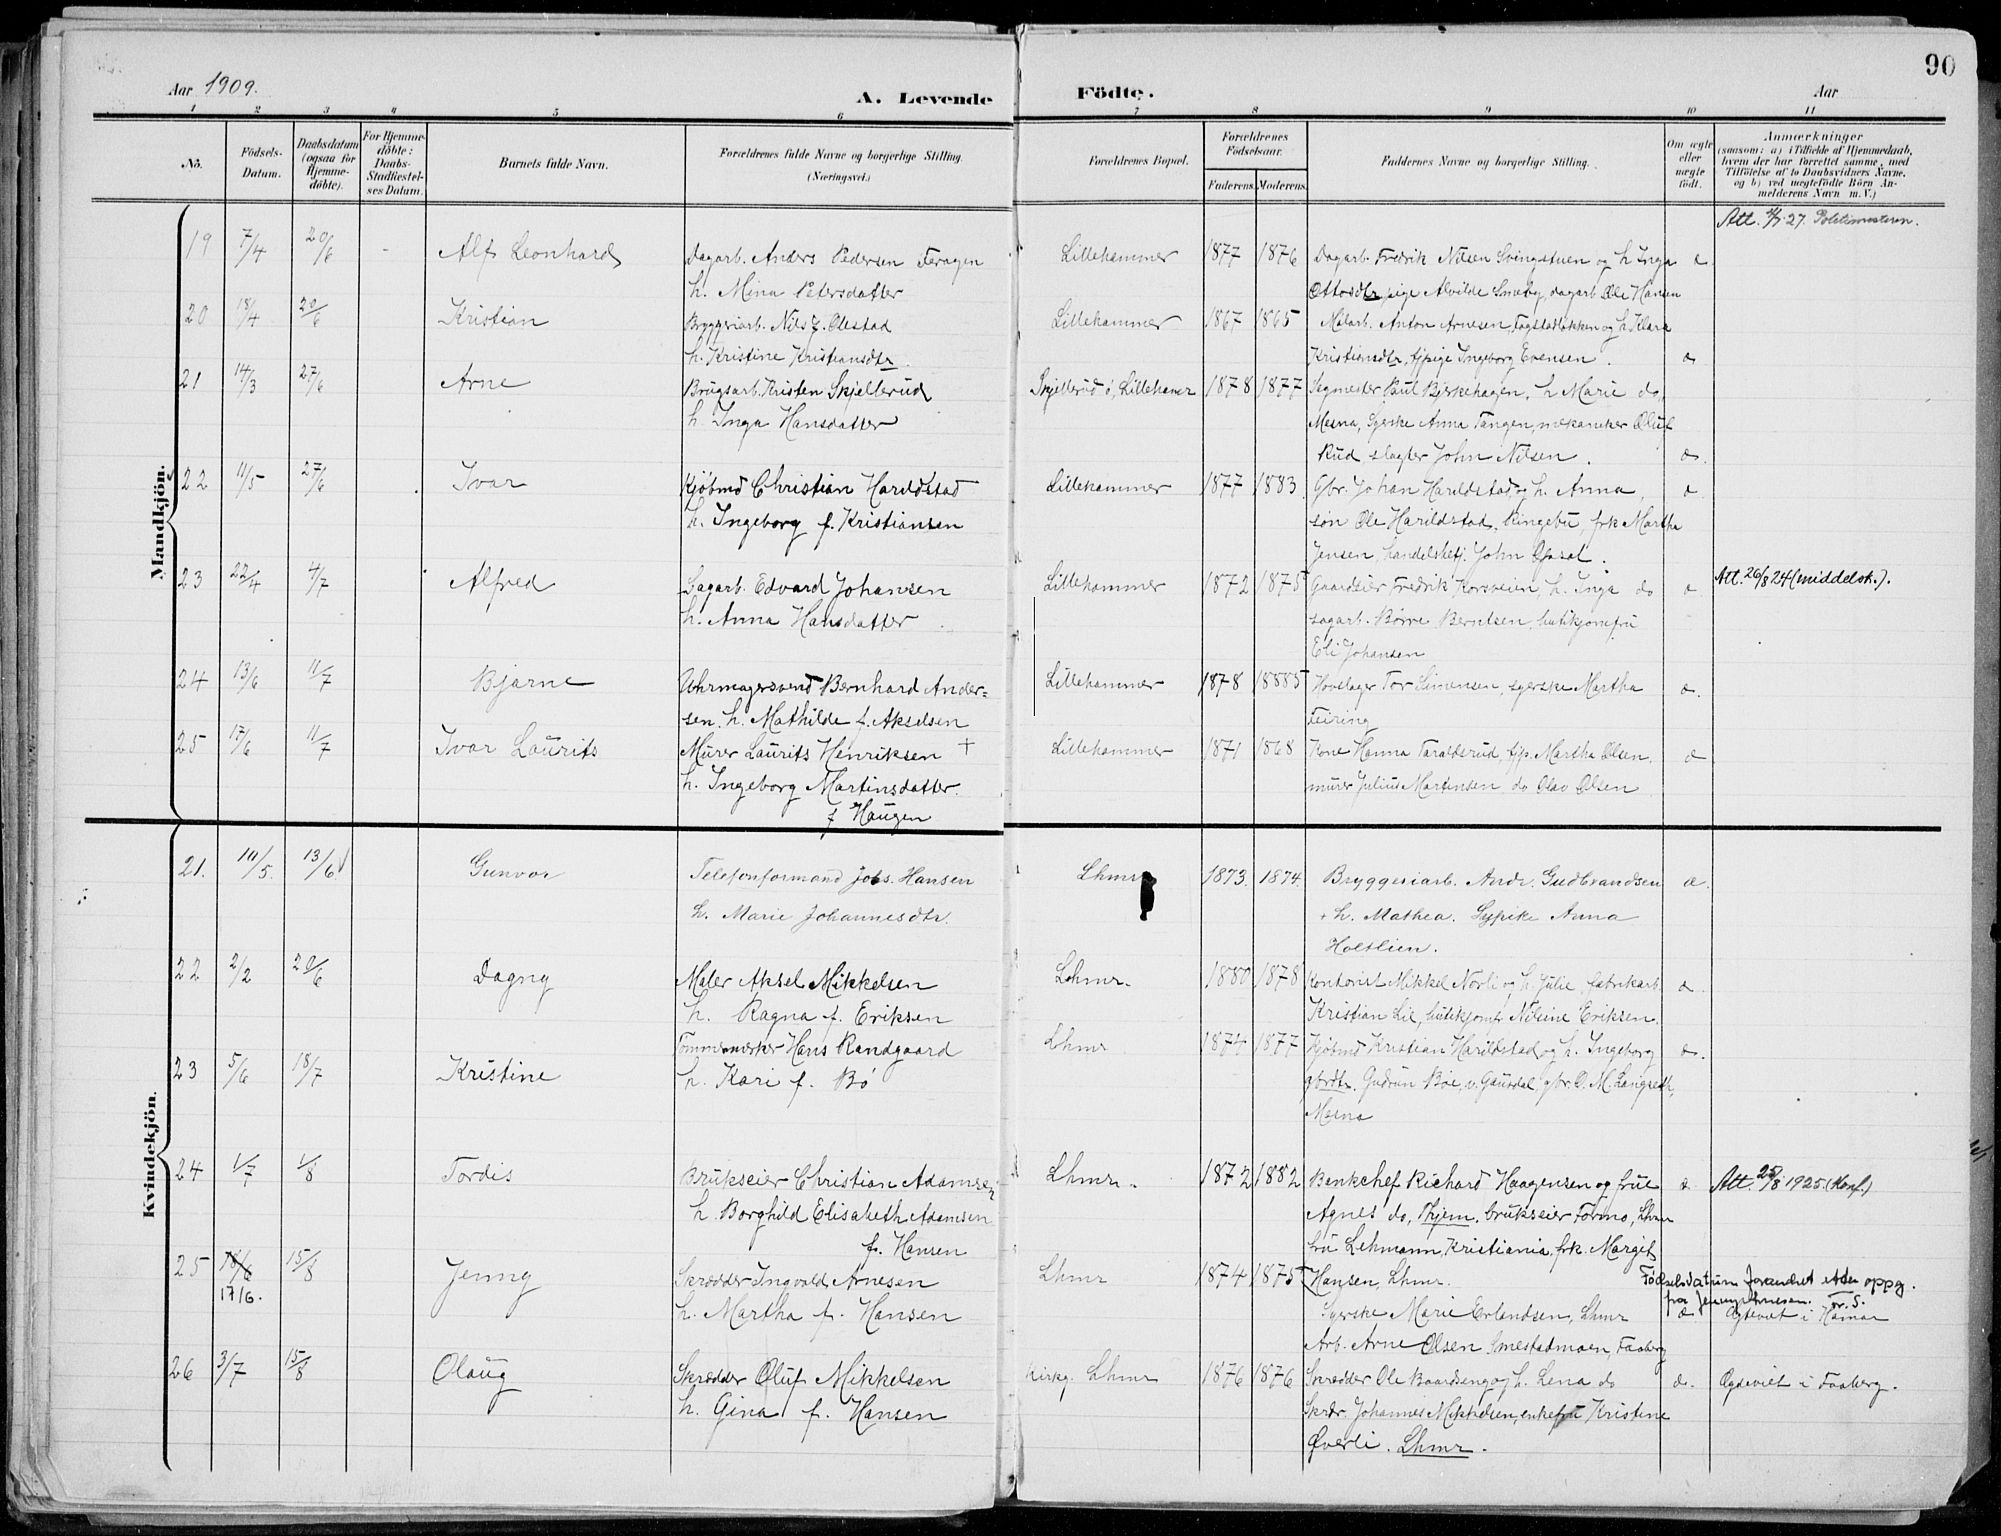 90
Aar 1909.
A. Levende Födte.
Aar
1 2 3 4 5 6 7 8 9 10 11
No. Födsels-Datum. Daabsdatum (ogsaa for Hjemmedöbte). For Hjemmedöbte: Daabs-Stadfæstelses Datum. Barnets fulde Navn. Forældrenes fulde Navne og borgerlige Stilling. (Næringsvei.) Forældrenes Bopæl. Forældrenes Födselsaar. Faderens. Moderens. Faddernes Navne og borgerlige Stilling. Om ægte eller uægte födt. Anmærkninger (saasom: a) i Tilfælde af Hjemmedaab, hvem der har forrettet samme, med Tilföielse af to Daabsvidners Navne, og b) ved uægtefödte Börn Anmelderens Navn m. V.)
Mandkjön.
Att. 27. Politimesteren.
19 7/4 20/6 - Alf Leonhard Dagarb. Anders Pedersen Feragen Lillehammer 1877 1876 Dagarb. Fredrik Nilsen Svingstuen og h. Inga æ
h. Mina Petersdatter Ottosdtr, pige Alvilde Smeby, dagarb Ole Hansen
20 18/4 20/6 Kristian Bryggeriarb. Nils J. Ølestad Lillehammer 1867 1865 Malarb. Anton Arnesen, Fagstadløkken og h. Klara
h. Kristine Kristiansdtr. Kristiansdtr, tjpige Ingeborg Evensen. æ
21 14/3 27/6 Arne Brugsarb. Kristen Skjellerud Skjellerud, Lillehamer 1878 1877 Sagmester Paul Bjerkehagen, h Marie do,
h. Inga Hansdatter Mesna, Syerske Anna Tangen, mekaniker Oluf
Rud, slagter John Nilsen. æ.
22 11/5 27/6 Ivar Kjöbmd Christian Harildstad Lillehammer 1877 1883 Gbr. Johan Harildstad og h. Anna, æ
h. Ingeborg f. Kristiansen søn Ole Harildstad, Ringebu, frk Martha
Jensen, handelsbetj. John
23 22/4 4/7 Alfred Sagarb. Edvard Johansen Lillehammer 1872 1875 Gaardeier Fredrik Korsveien, h. Inga do æ Att. 26/8 24 (middelsk.).
h. Anna Hansdatter sagarb. Børre Berntsen, butikjomfru
Eli Johansen
24 13/6 11/7 Bjarne Uhrmagersvend Bernhard Ander- Lillehammer 1878 18885 Hovslager Tor Simensen, syerske Martha æ.
sen. h. Mathilde f. Akselsen Feiring
25 17/6 11/7 Ivar Laurits Murer Laurits Henriksen + Lillehammer 1871 1868 Kone Hanna Taralderud, tjp. Martha Olsen, æ
h. Ingeborg Martinsdatter murer Julius Martinsen do Olav Olsen
f Haugen
Kvindekjön.
21. 10/5. 13/6 Gunvor Telefonformand Johs. Hansen Lhmr 1873. 1874. Bryggeriarb. Andr. Gudbrandsen æ.
h. Marie Johannesdtr. + h. Mathea. Sypike Anna
Holtlien.
22 2/2 20/6 Dagny Maler Aksel Mikkelsen Lhmr. 1880 1878 Kontorist Mikkel Norli og h. Julie, fabrikarb. æ.
h. Ragna f. Eriksen Kristian Lie, butikjomfr Nilsine Eriksen.
23 5/6 18/7 Kristine Tømmermerker Hans Randgaard Lhmr 1874 1877 Kjöbmd Kristian Harildstad og h. Ingeborg æ.
h. Kari f. Bø gbrdtr. Gudrun Bøe, v. Gausdal, gbr. O. M. Langseth,
Mesna
24 1/7 1/8 Tordis Brukseier Christian Adamsen Lhmr. 1872 1882 Bankchef Richard Haagensen og frue æ Att. 25/8 1925 (Konf.)
h. Borghild Elisabeth Adamsen Agnes do, Thjem, brukseier Formo, Lhmr
f. Hansen fru Lehmann, Kristiania, frk. Margit
25 18/6 15/8 Jenny Skrædder Ingvald Arnesen Lhmr 1874 1875 Hansen, Lhmr. Fødselsdatum forandret etter oppg.
17/6. fra Jenny Arnesen.
h. Martha f. Hansen Syerske Marie Erlandsen, Lhmr æ Ogteviet i Hamar
Arb. Arne Olsen Smestadmoen, Faaberg
26 3/7 15/8 Olaug Skrædder Oluf Mikkelsen Kirkg. Lhmr 1876 1876 Skrædder Ole Baardseng og h. Lena do æ. Ogteviet i Faaberg.
h. Gina f. Hansen Skrdr. Johannes Mikkelsen, enkefru Kristine
Øverli. Lhmr.